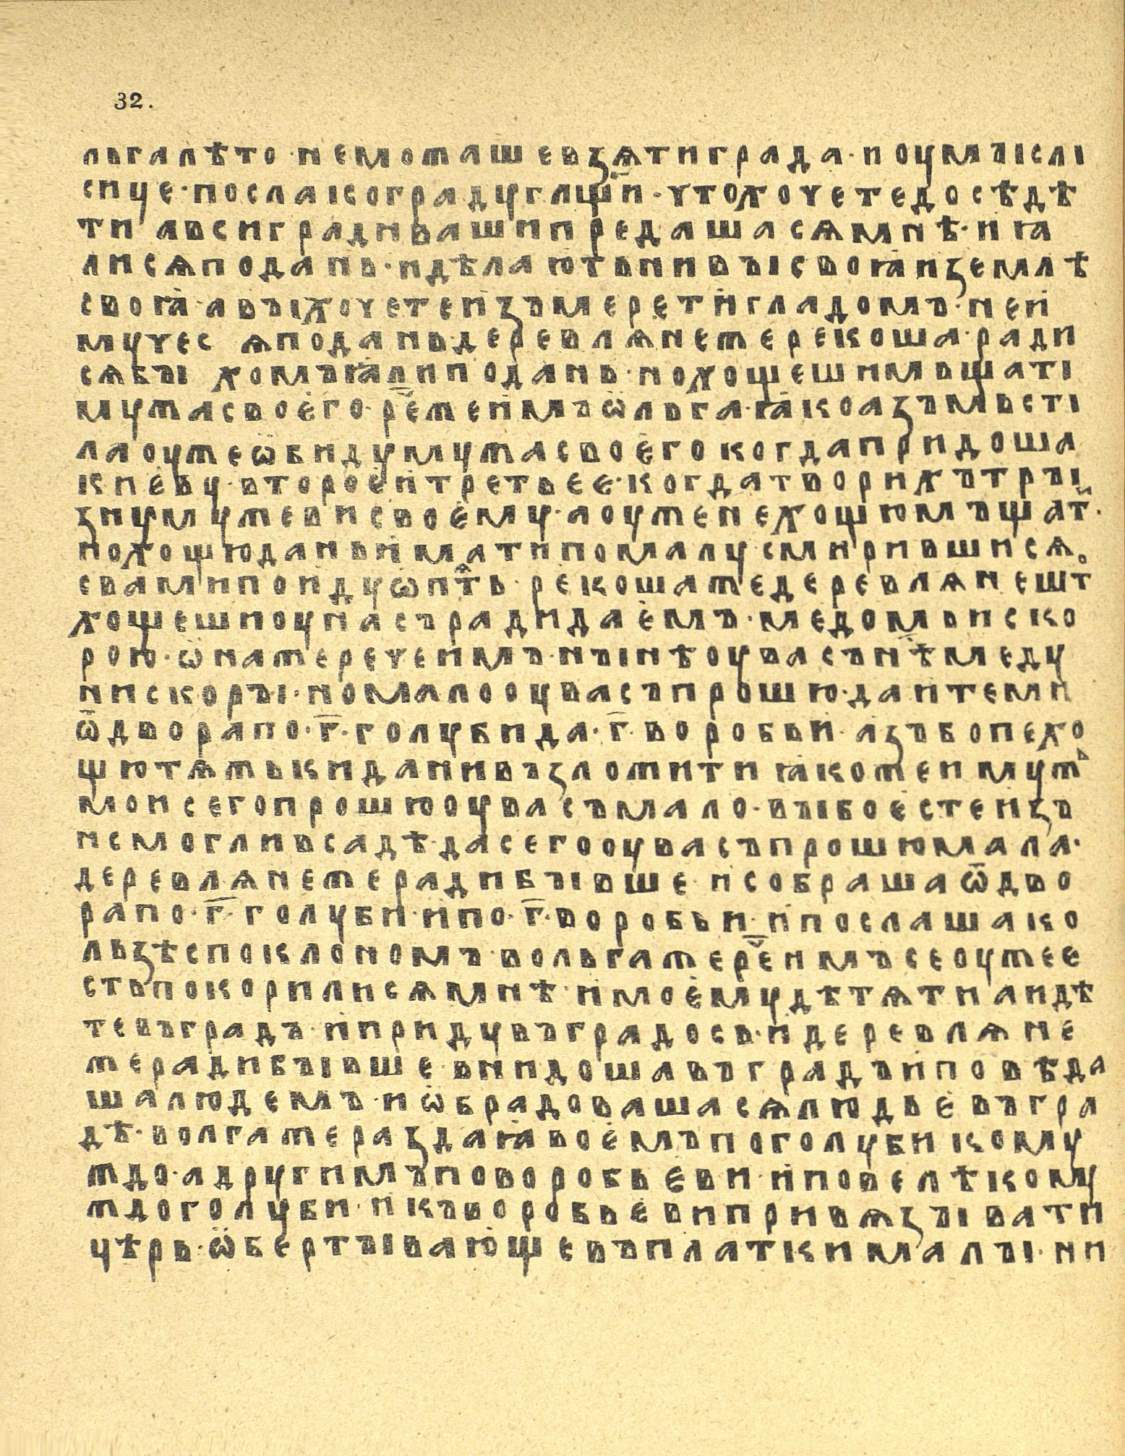 32.
льгалѣто·немоташевзѧтиграда·иоумъıслі
сице·послакограду҃глщи҃·чтохоуетедосѣдѣ
ти авсиградивашипредашасѧмнѣ·иꙗ
лисѧподань·идѣлаютьнивъıсвоꙗиземлѣ
своꙗ·авъıхоуетеизъмеретигладомъ·неи
мучес ѧподань·деревлѧнежерекоша·ради
сѧбъı хомъꙗлиподань·нохощешимьщаті
мужасвоего·ре҃жеимъѡльга·ꙗкоазъмьсті
лаоужеѡбидумужасвоегокогдапридоша
киеву·второеитретьее·когдатворихътръı
знумужевисвоему·аоуженехощюмъщати·
нохощюданьиматипомалусмирившисѧ
свамипоидуѡпѧть·рекошажедеревлѧнешто
хощешиоунасърадидаемъ·медомьиско
рою·ѡнажеречеимъ·нъıнѣоувасънѣмеду
нискоръı·номалооувасъпрошю·даитеми
ѿдворапо·г҃·голубида·г҃·воробьи·азъбонехо
щютѧжькиданивъзложитиꙗкожеимуж
моисегопрошюоувасъмало·въıбоестеизъ
немогливъсадѣ·дасегооувасъпрошюмала·
деревлѧнежерадибъıвше·исобрашаѿдво
рапо·г҃·голуби·ипо·г҃·воробьи·ипослашако
льзѣспоклономъ·вольгажере҃имъсеоужее
стьпокорилисѧмнѣ·имоемудѣтѧтиаидѣ
тевъградъ·ипридувъградось·идеревлѧне
жерадибъıвше·внидошавъградъиповѣда
шалюдемъ·иѡбрадовашасѧлюдьевъгра
дѣ·волгажераздаꙗвоемъпоголубикому
ждо·адругимъповоробьеви·иповелѣкому
ждоголуби·икъворобьевипривѧзъıвати
цѣрь·ѡбертъıвающевъплаткималъı·ни